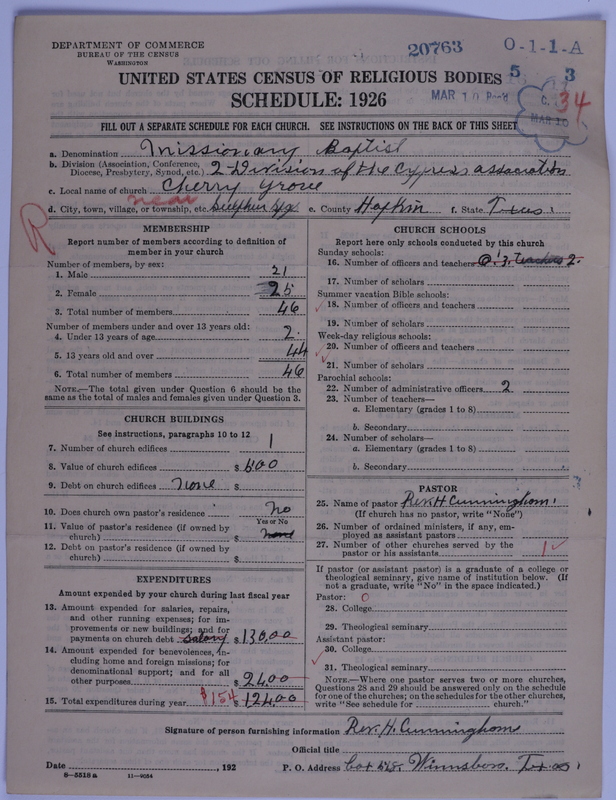 DEPARTMENT OF COMMERCE
BUREAU OF THE CENSUS
WASHINGTON
20763 0-1-1-A
UNITED STATES CENSUS OF RELIGIOUS BODIES 5 3
SCHEDULE: 1926
MAR 10
34
MAR 10
FILL OUT A SEPARATE SCHEDULE FOR EACH CHURCH. SEE INSTRUCTIONS ON THE BACK OF THIS SHEET
a. Denomination Missionary Baptist
b. Division (Association, Conference, Diocese, Presbytery, Synod, etc.) 2 Division of the Cypress association
c. Local name of church Cherry Grove
near
d. City, town, village, or township, etc. Sulphur Spg e. County Hopkin f. State Texas
R
MEMBERSHIP
Report number of members according to definition of
member in your church
Number of members, by sex:
1. Male 21
2. Female 25
3. Total number of members 46
Number of members under and over 13 years old:
4. Under 13 years of age 2
5. 13 years old and over 44
6. Total number of members 46
NOTE.—The total given under Question 6 should be
same as the total of males and females given under Question 3.
CHURCH BUILDINGS
See instructions, paragraphs 10 to 12
7. Number of church edifices 1
8. Value of church edifices $ 600
9. Debt on church edifices none $
10. Does church own pastor's residence no
Yes or No
11. Value of pastor's residence (if owned by
church) $ none
12. Debt on pastor's residence (if owned by
church) $
EXPENDITURES
Amount expended by your church during last fiscal year
13. Amount expended for salaries, repairs,
and other running expenses; for im-
provements or new buildings; and for
payments on church debt salary $ 130.00
14. Amount expended for benevolences, in-
cluding home and foreign missions; for
denominational support; and for all
other purposes $ 24.00
15. Total expenditures during year $154 $ 124.00
CHURCH SCHOOLS
Report here only schools conducted by this church
Sunday schools:
16. Number of officers and teachers 3. Teachers 2.
17. Number of scholars
Summer vacation Bible schools:
18. Number of officers and teachers
19. Number of scholars
Week-day religious schools:
20. Number of officers and teachers
21. Number of scholars
Parochial schools:
22. Number of administrative officers 2
23. Number of teachers—
a. Elementary (grades 1 to 8)
b. Secondary
24. Number of scholars—
a. Elementary (grades 1 to 8)
b. Secondary
PASTOR
25. Name of pastor Rev. H Cunningham
(If church has no pastor, write "None")
26. Number of ordained ministers, if any, em-
ployed as assistant pastors
27. Number of other churches served by the
pastor or his assistants 1
If pastor (or assistant pastor) is a graduate of a college or
theological seminary, give name of institution below. (If
not a graduate, write "No" in the space indicated.)
Pastor: 0
28. College
29. Theological seminary
Assistant pastor:
30. College
31. Theological seminary
NOTE.—Where one pastor serves two or more churches,
Questions 28 and 29 should be answered only on the schedule
for one of the churches; on the schedules for the other churches,
write "See schedule for church."
Signature of person furnishing information Rev. H. Cunningham
Official title
Date , 192 P. O. Address Winnsboro, Texas
8—5518a 11—9054